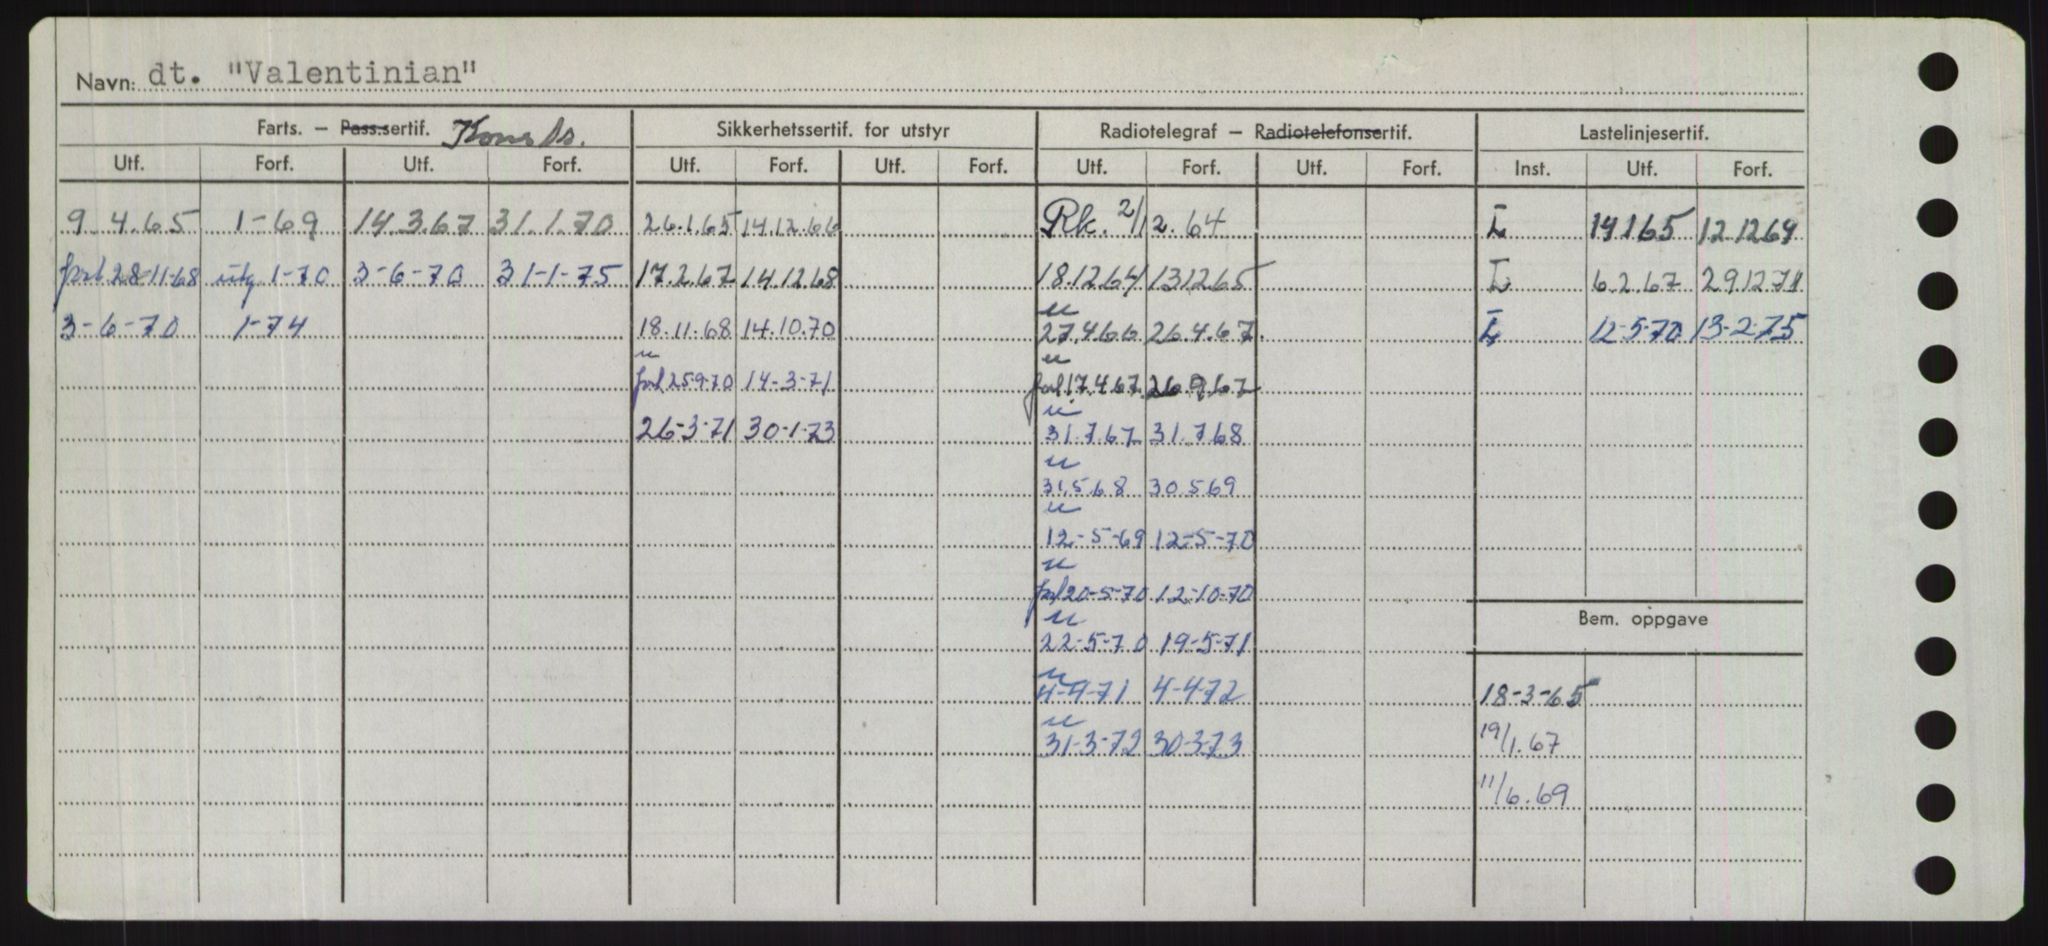 Navn: dt. "Valentinian"
Farts. – Pass.sertif. Sikkerhetssertif. for utstyr Radiotelegraf – Radiotelefonsertif. Lastelinjesertif.
Utf. Forf. Utf. Forf. Utf. Forf. Utf. Forf. Utf. Forf. Utf. Forf. Inst. Utf. Forf.
9.4.65 1-69 14.3.67 31.1.70 26.1.65 14.12.66 Rk. 2/12.64 L 14 1 65 12 12 69
forl 28-11-68 utg 1-70 3-6-70 31-1-75 17.2.67 14.12.68 18.12 64 13 12 65 L 6.2.67 29 12 71
u
3-6-70 1-74 18.11.68 14.10.70 27.4 66 26.4.67. L 12-5-70 13-2-75
u u
forl 25 9-70 14-3-71 forl 17.4 67 26 9 67
u
26-3-71 30-1-73 31.7.67 31.7 68
u
31.5 6 8 30 5 69
u
12-5-69 12-5-70
u
forl 20-5-70 12-10-70
u
22-5-70 19-5-71
Bem. oppgave
u
4-4-71 4-4-72 18-3-65
u
31-3-72 30-3-73 19/1.67
11/6.69